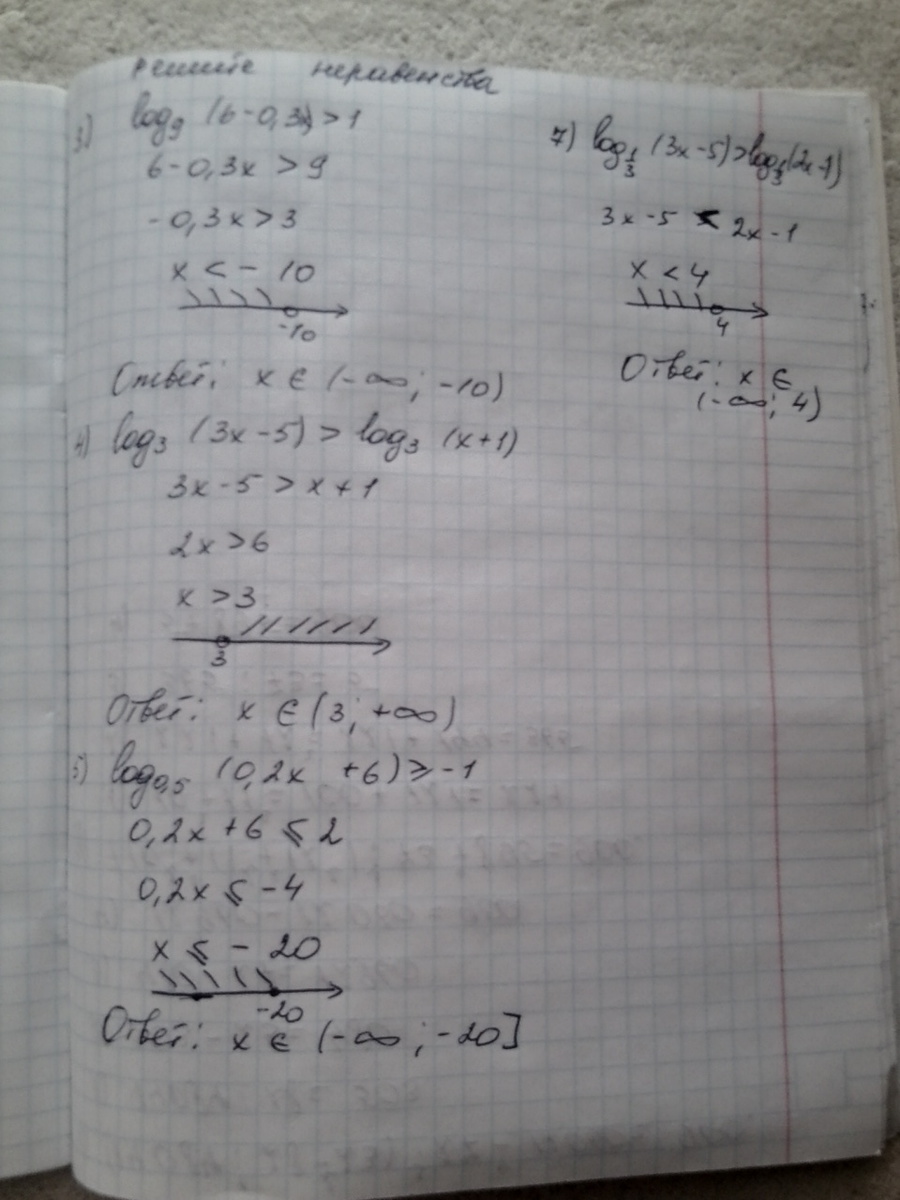 решите неравенства
3) log₉ (6-0,3x) > 1
6-0,3x > 9
-0,3x > 3
x < -10
-10
Ответ: x ∈ (-∞; -10)
4) log₃ (3x-5) > log₃ (x+1)
3x-5 > x+1
2x > 6
x > 3
3
Ответ: x ∈ (3; +∞)
5) log₀,₅ (0,2x +6) ⩾ -1
0,2x +6 ⩽ 2
0,2x ⩽ -4
x ⩽ -20
-20
Ответ: x ∈ (-∞; -20]
7) log_{1/3} (3x-5) > log_{1/3} (2x-1)
3x-5 < 2x-1
x < 4
4
Ответ: x ∈
(-∞; 4)